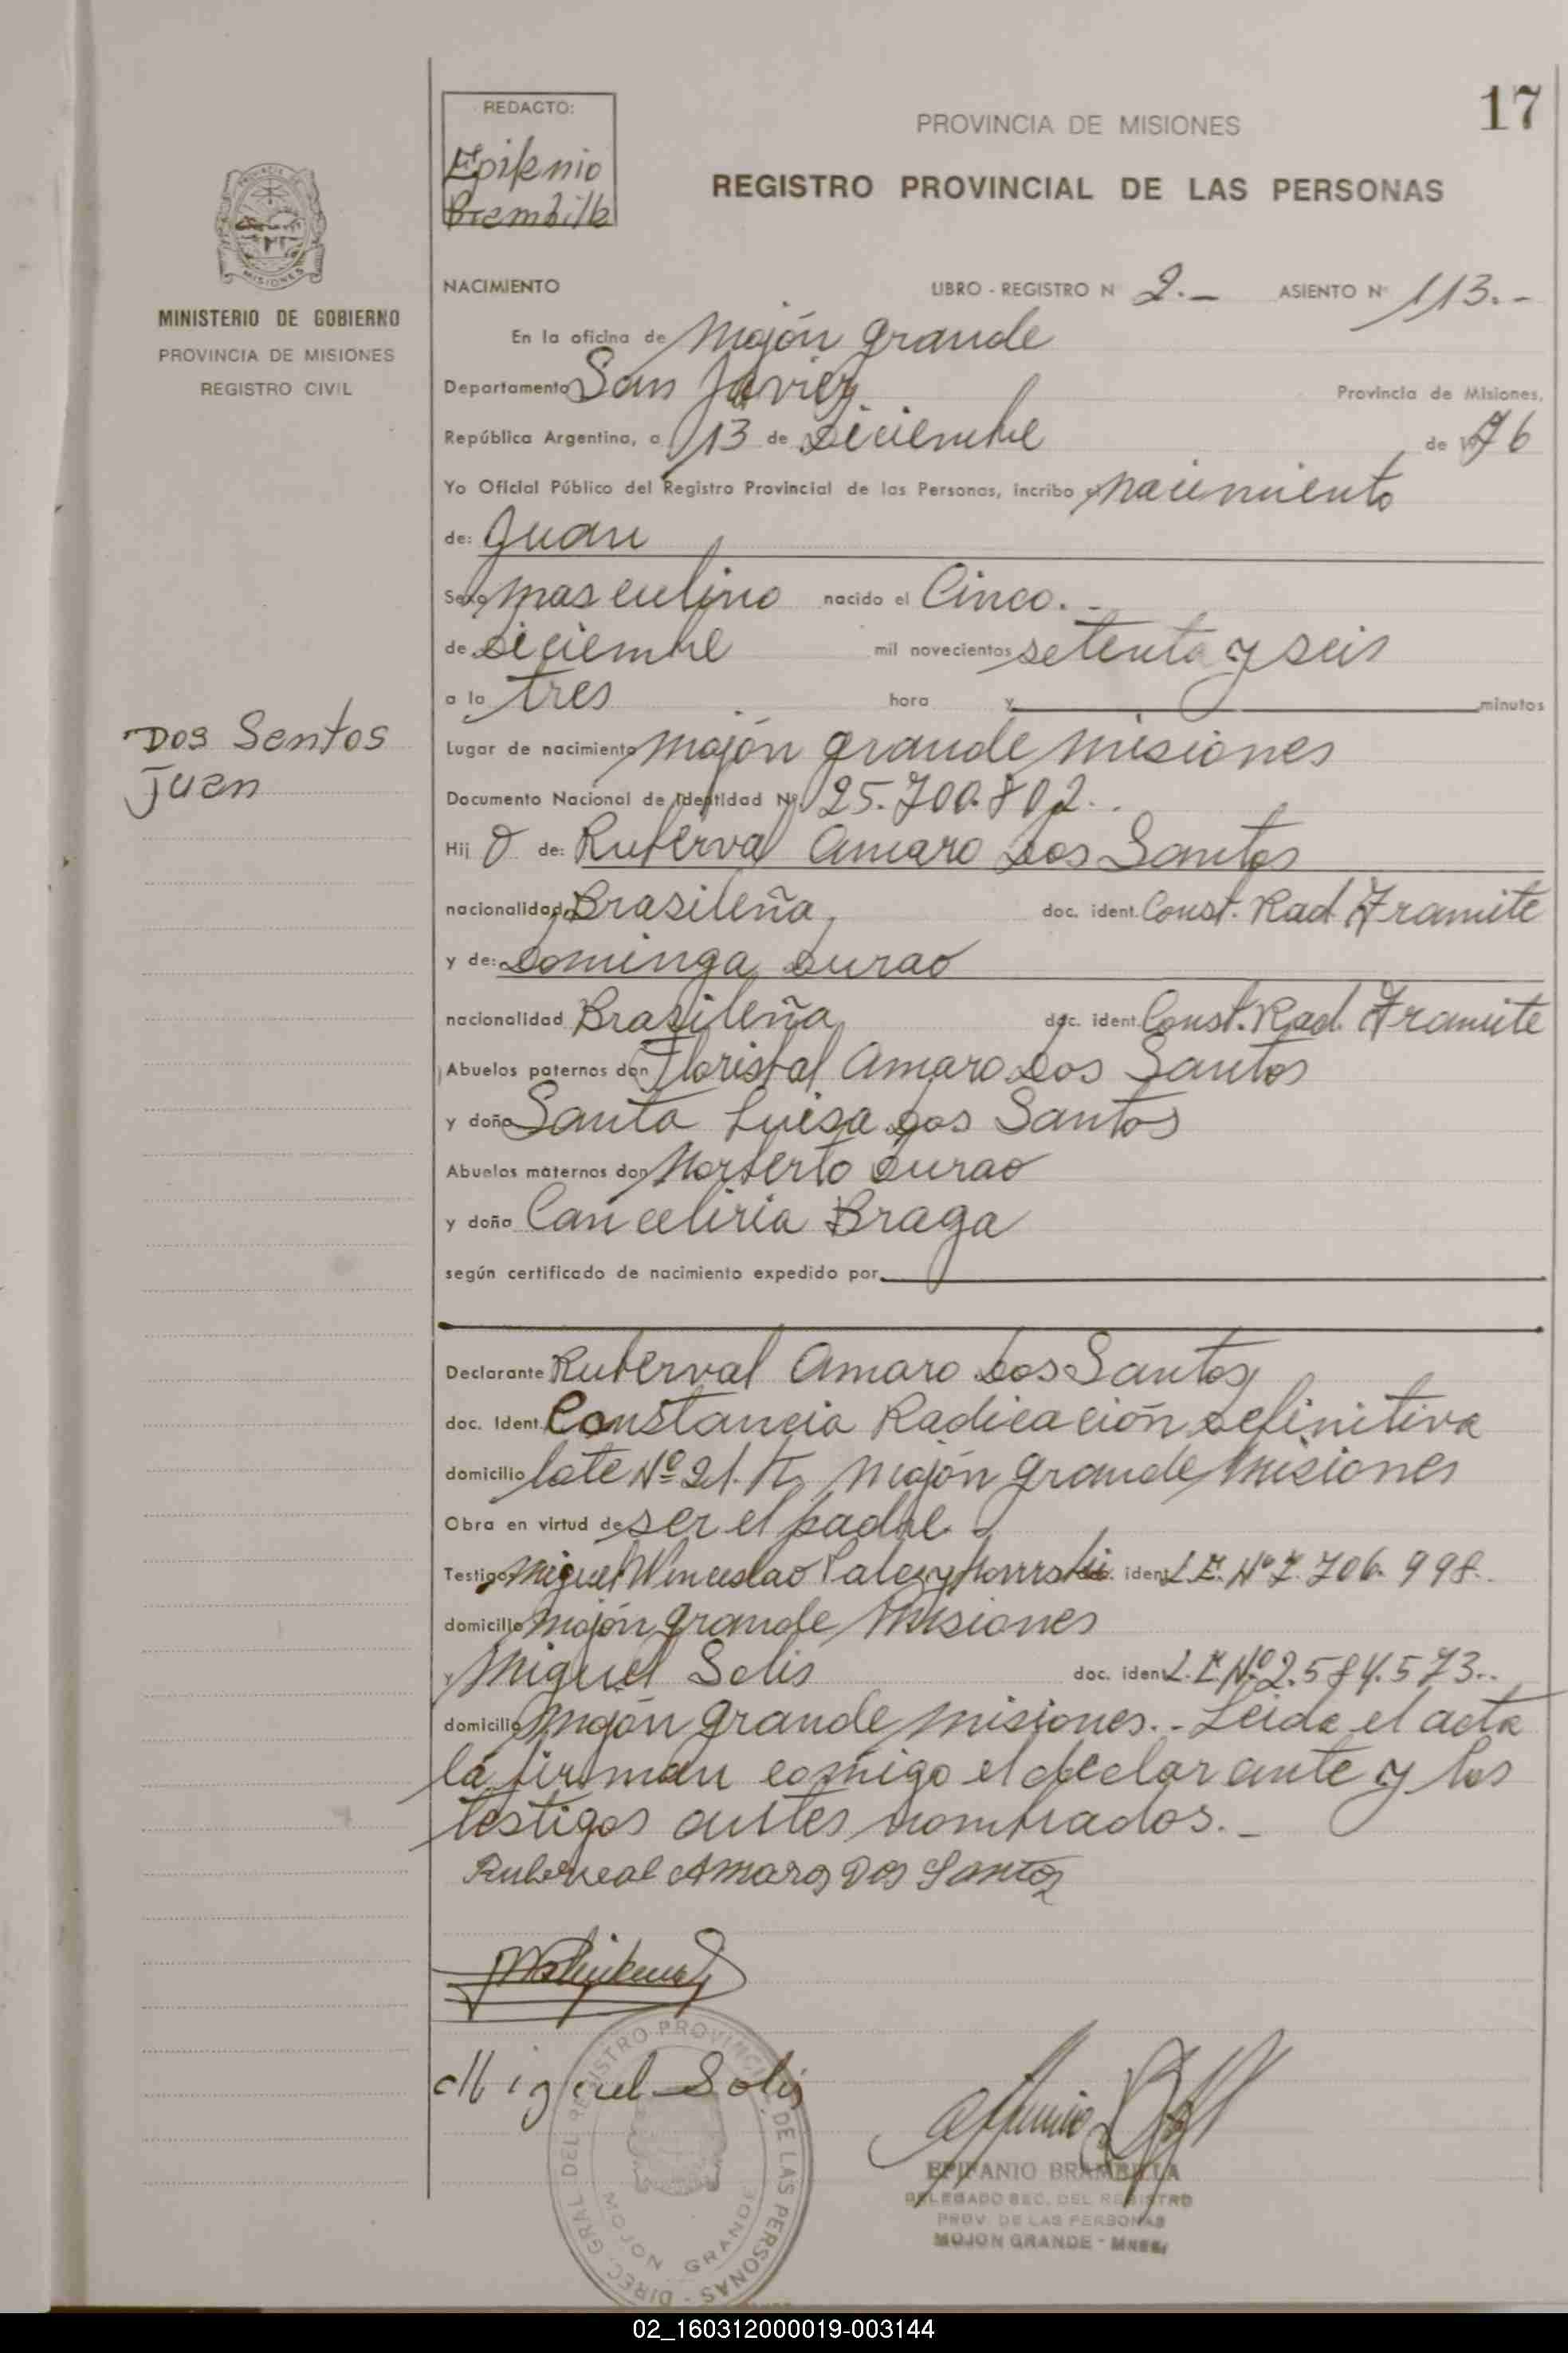 17
REDACTO:
Epifenio
Brembille
PROVINCIA DE MISIONES
REGISTRO PROVINCIAL DE LAS PERSONAS
MISIONES
MINISTERIO DE GOBIERNO
PROVINCIA DE MISIONES
REGISTRO CIVIL
NACIMIENTO LIBRO - REGISTRO N 2.- ASIENTO N° 113.-
En la oficina de Mojón grande
Departamento San Javier Provincia de Misiones,
República Argentina, a 13 de Diciembre de 1976
Yo Oficial Público del Registro Provincial de las Personas, incribo el nacimiento
de: Juan
Sexo masculino nacido el Cinco.-
de Diciembre mil novecientos setenta y seis
a la tres hora y minutos
Dos Sentos
Juen
Lugar de nacimiento Mojón grande Misiones
Documento Nacional de Identidad Nº 25.700.802..
Hij o de: Ruberval Amaro Dos Santos
nacionalidad Brasileña, doc. ident. Const. Rad. Tramite
y de: Dominga Durao
nacionalidad Brasileña doc. ident. Const. Rad. Tramite
Abuelos paternos don Floristal Amaro Dos Santos
y doña Santa Luisa dos Santos
Abuelos maternos don Norberto Durao
y doña Canceliria Braga
según certificado de nacimiento expedido por
Declarante Ruberval Amaro Dos Santos
doc. Ident. Constancia Radicación Definitiva
domicilio lote Nº 21. Mojón grande Misiones
Obra en virtud de ser el padre.-
Testigos Miguel Wenceslao ident L.E. Nº 7.706.998..
domicilio Mojón grande Misiones
y Miguel Solis doc. ident L.E. Nº 2.584.573..
domicilio Mojón grande Misiones.- Leida el acta
la firman comigo el declarante y los
testigos antes nombrados.-
Ruberval Amaro Dos Santos
Miguel Solis
DIREC. GRAL. DEL REGISTRO PROVINCIAL DE LAS PERSONAS -
MOJON GRANDE
EPIFANIO BRAMBILLA
DELEGADO SEC. DEL REGISTRO
PROV. DE LAS PERSONAS
MOJON GRANDE - MNES.
02_160312000019-003144